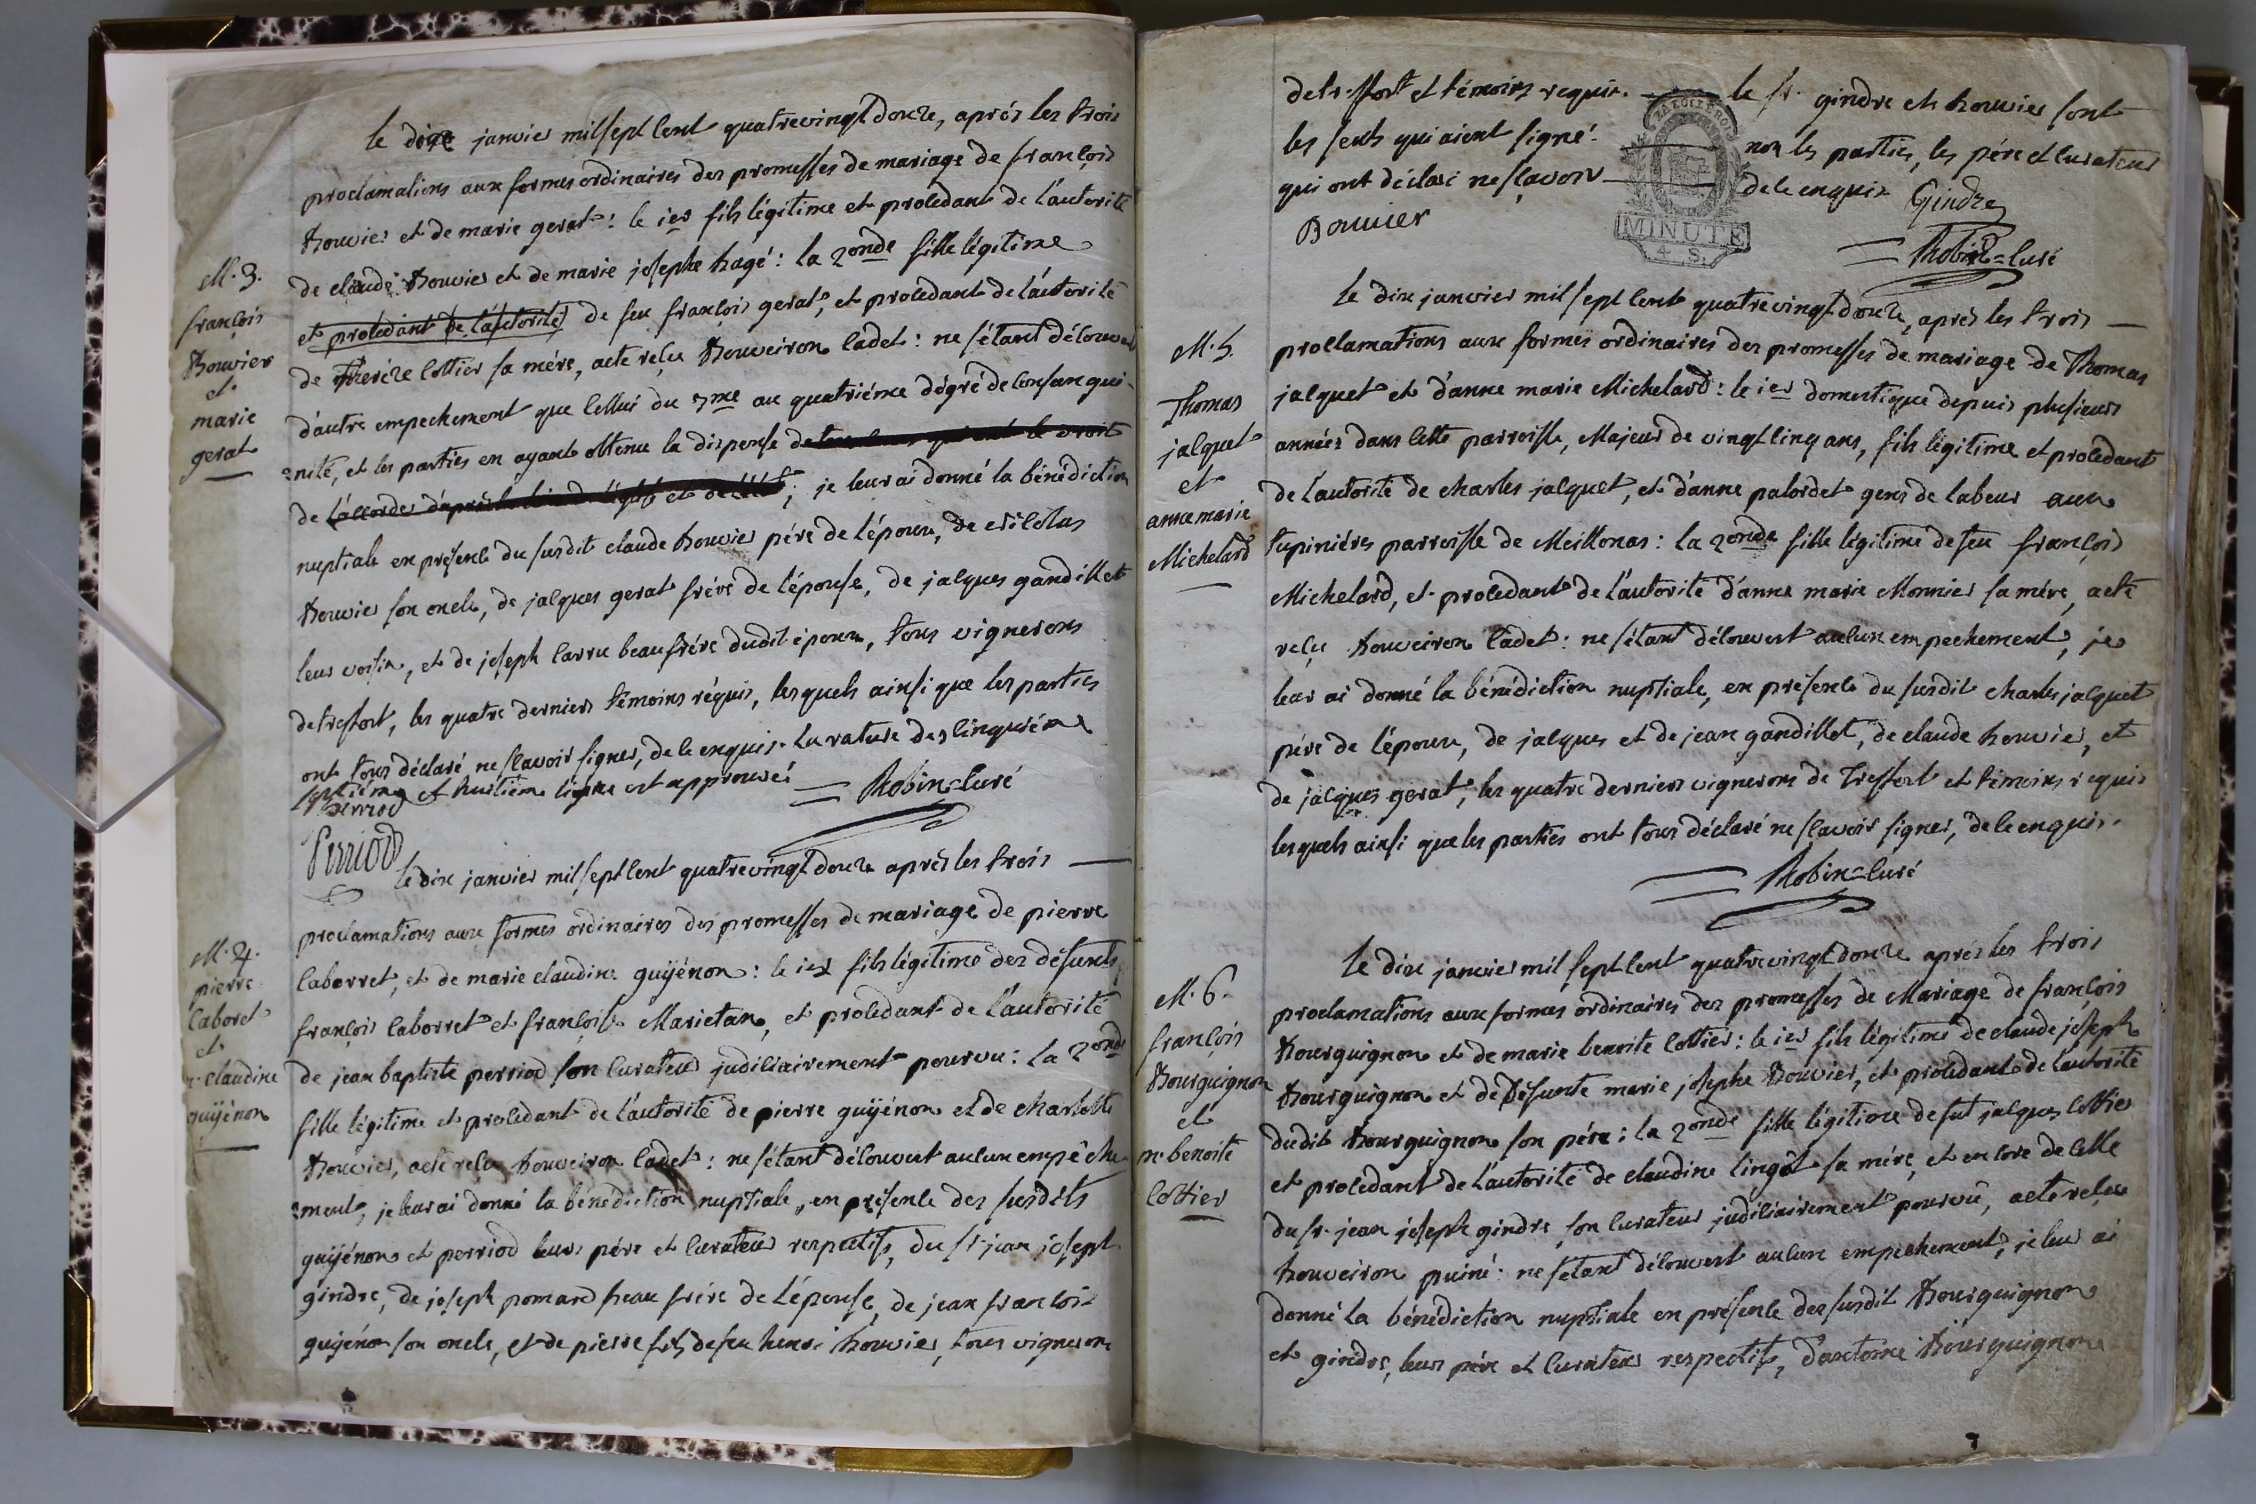 le dixe janvier mil sept cent quatrevingt douze, aprés les trois
proclamations aux formes ordinaires des promesses de mariage de françois
Bouvier et de marie gerat : le 1er fils légitime et procedant de l'autorité
de claude Bouvier et de marie josephe : la 2onde fille légitime
et procedant de l'autorité de feu françois gerat, et procedant de l'autorité
de therèze Cottier sa mére, acte reçu Bouveiron cadet : ne s'étant découvert
d'autre empechement que cellui du 3me au quatriéme dégré de consangui-
=nité, et les parties en ayant obtenu la dispense de
de l'accorder d'après ; je leur ai donné la bénédiction
nuptiale en présence du susdit claude bouvier pére de l'époux, de Nicolas
Bouvier son oncle, de jacques gerat frére de l'épouse, de jacques gandillet
leur voisin, et de joseph carru beaufrére dudit époux, tous vignerons
de tresfort, les quatre derniers témoins réquis, lesquels ainsi que les parties
ont tous déclaré ne sçavoir signer, de ce enquis. la rature des cinquiéme
septiéme et huitiéme lignes est approuvé = Robin=Curé
M. 3.
françois
Bouvier
et
marie
gerat
perriod
Perriod
le dix janvier mil sept cent quatrevingt douze aprés les trois
proclamations aux formes ordinaires des promesses de mariage de pierre
Caborret, et de marie claudine guÿénon : le 1er fils légitime des défunts
françois Caborret et françoise Marietan, et procedant de l'autorité
de jean baptiste perriod son curateur judiciairement pourvu : la 2onde
fille légitime et procedant de l'autorité de pierre guÿénon et de charlotte
Bouvier, acte reçu bouveiron cadet : ne s'étant découvert aucun empêche-
=ment, je leur ai donné la bénédiction nuptiale, en présence des susdits
guÿénon et perriod leurs pére et curateur respectifs, du sr. jean joseph
gindre, de joseph pomard beau frére de l'épouse, de jean françois
guÿénon son oncle, et de pierre fils de feu henri bouvier, tous vignerons
M. 4.
pierre
Caboret
et
claudine
guÿénon
de tresfort et témoins requis. le sr. gindre et bouvier sont
les seuls qui aient signé. non les parties, les pére et curateur
qui ont déclaré ne sçavoir de ce enquis Gindre
Bouvier
MINUTE
4 S.
= Robin=Curé
le dix janvier mil sept cent quatrevingt douze, aprés les trois
proclamations aux formes ordinaires des promesses de mariage de Thomas
jacquet et d'anne marie Michelard : le 1er domestique depuis plusieurs
années dans cette parroisse, Majeur de vingt cinq ans, fils légitime et procedant
de l'autorité de charles jacquet, et d'anne palordet gens de labeur aux
tupiniéres parroisse de Meillonas : la 2onde fille légitime de feu françois
Michelard, et procedant de l'autorité d'anne marie Monnier sa mére, acte
reçu Bouveiron cadet : ne s'étant découvert aucun empechement, je
leur ai donné la bénédiction nuptiale, en présence du susdit charles jacquet
pére de l'époux, de jacques et de jean gandillet, de claude bouvier, et
de jacques gerat, les quatre derniers vignerons de Tresfort et témoins requis
lesquels ainsi que les parties ont tous déclaré ne sçavoir signer, de ce enquis.
= Robin=Curé
M. 5.
Thomas
jacquet
et
anne marie
Michelard
le dix janvier mil sept cent quatrevingt douze aprés les trois
proclamations aux formes ordinaires des promesses de Mariage de françois
Bourguignon et de marie benoite Cottier : le 1er fils légitime de claude joseph
Bourguignon et de défunte marie josephe Bouvier, et procedant de l'autorité
dudit Bourguignon son pére : la 2onde fille légitime de fut jacques Cottier
et procedant de l'autorité de claudine Cingôt sa mére, et encore de celle
du sr. jean joseph gindre son curateur judiciairement pourvû, acte reçu
bouveiron puiné : ne s'étant découvert aucun empechement, je leur ai
donné la bénédiction nuptiale en présence des susdit Bourguignon
et gindre, leurs pére et curateur respectifs, d'antoine Bourguignon
M. 6.
françois
Bourguignon
et
m. benoite
Cottier